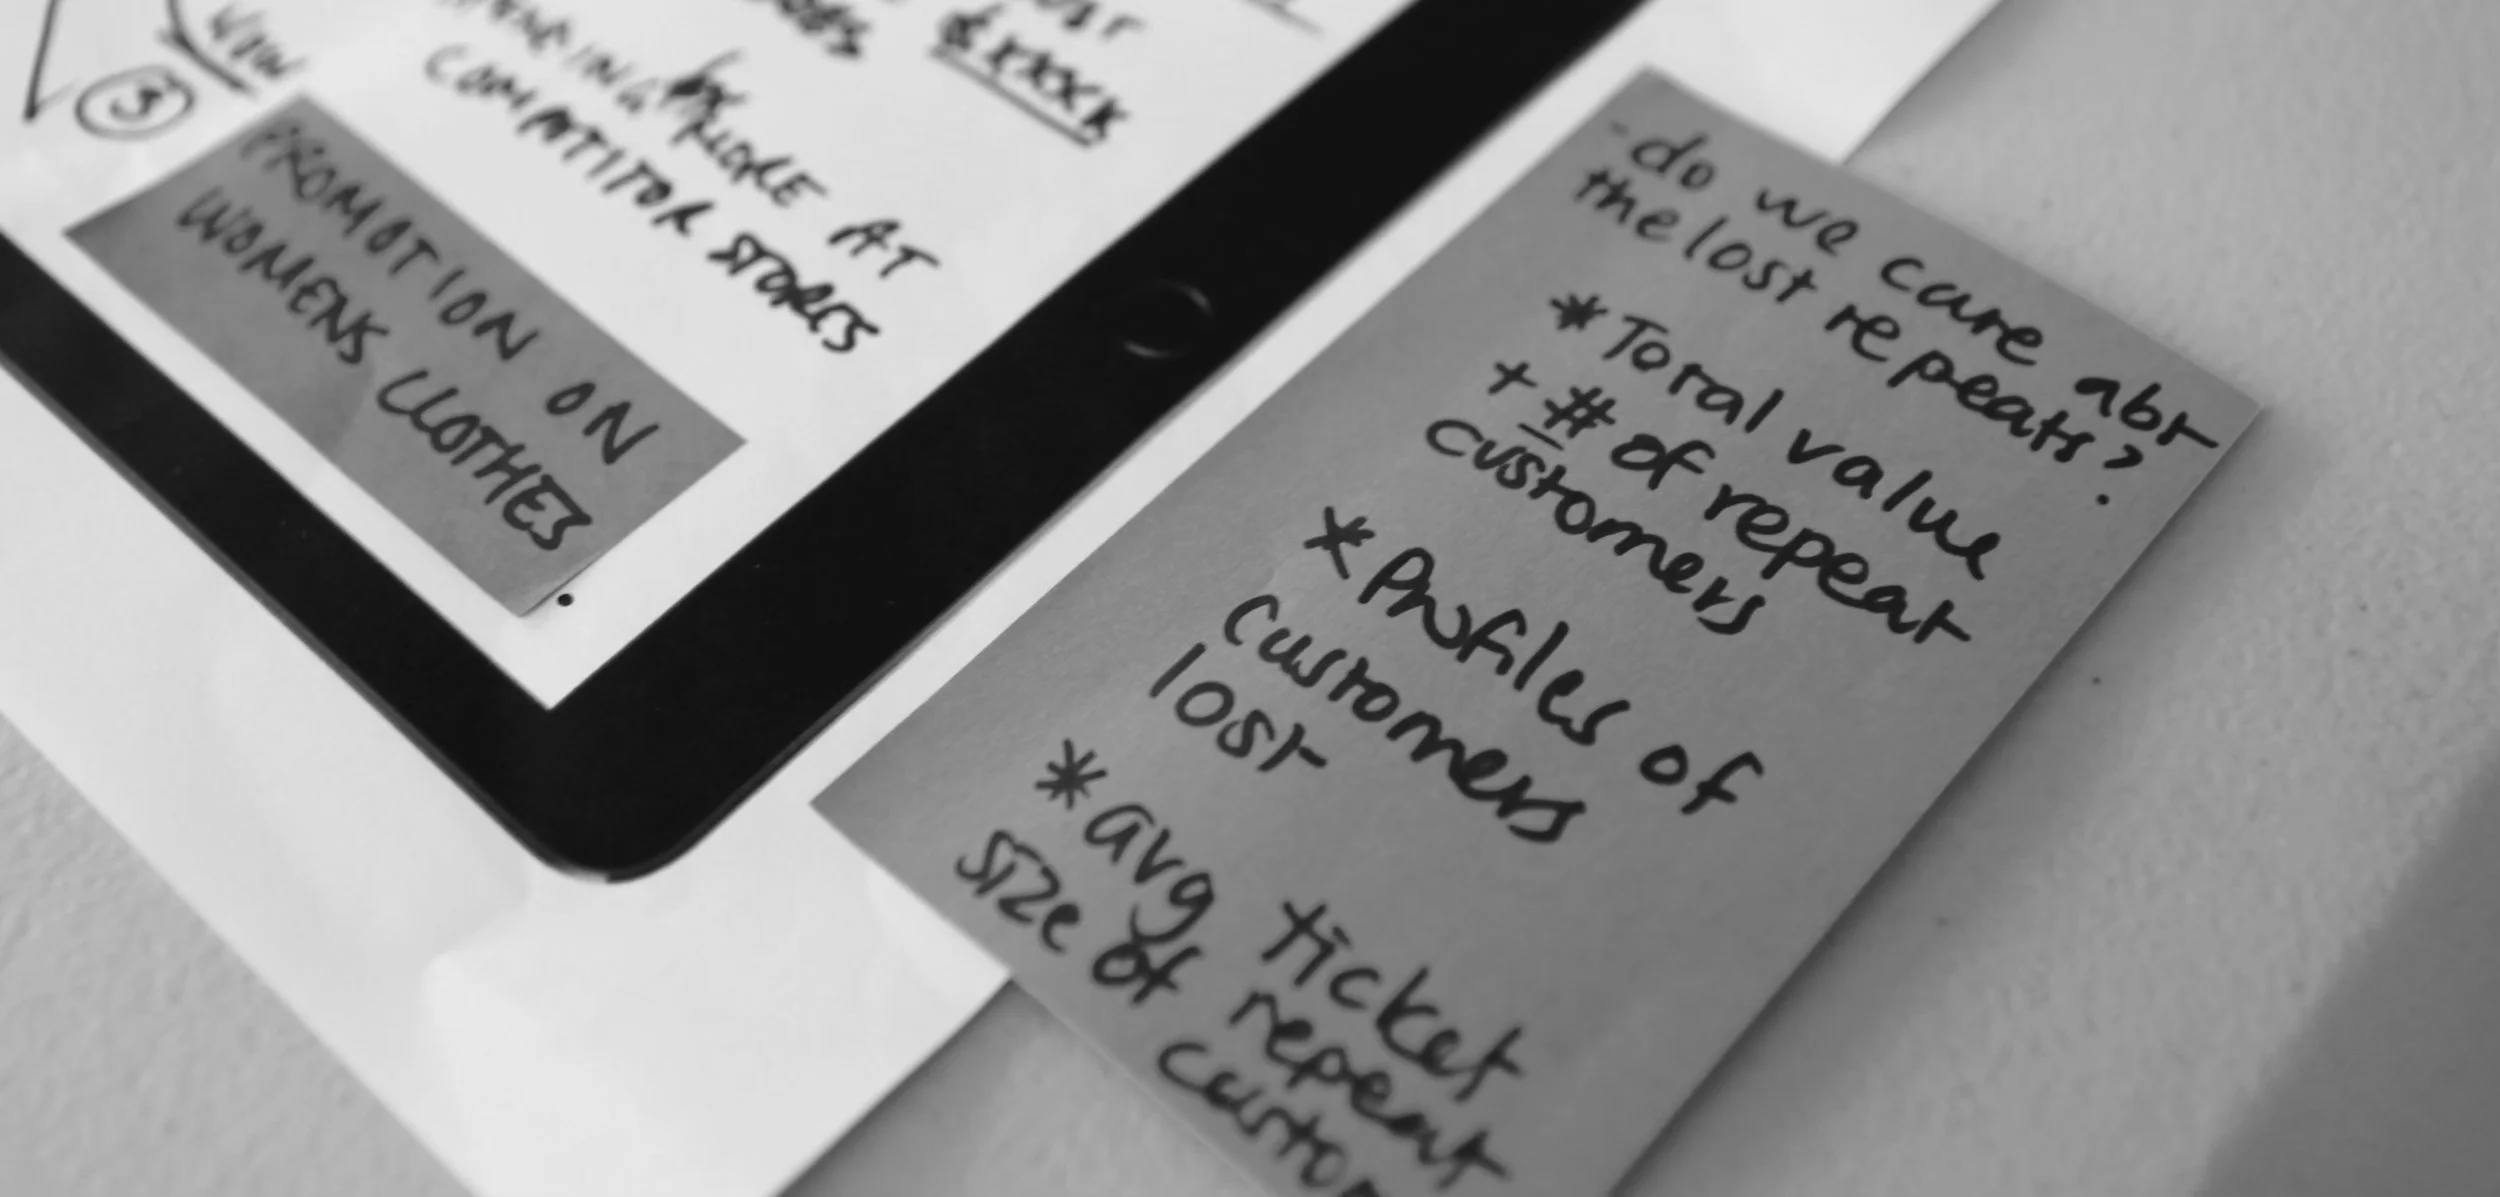 ③
PROMOTION ON
WOMENS CLOTHES
MORE AT
COMPATITOR STORES
-do we care abt
the lost repeats?
*Total value
+ # of repeat
customers
*Profiles of
customers
lost
*avg ticket
size of repeat
custom